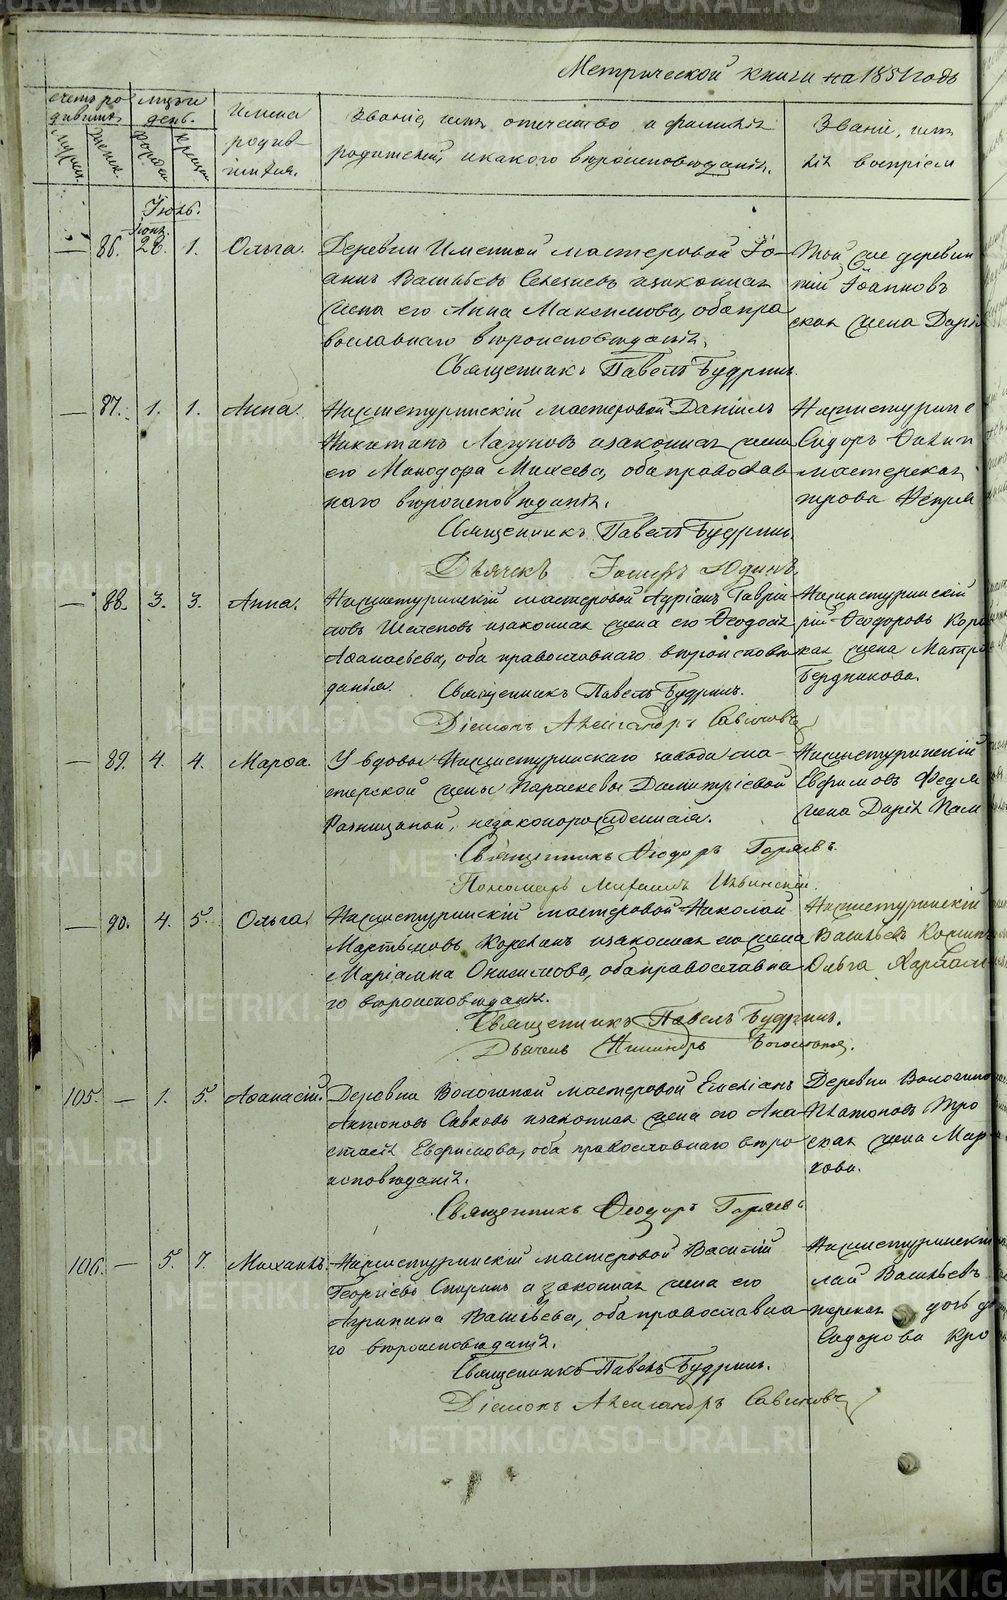 METRIKI.GASO-URAL.RU
Метрической книги на 1851 годъ
счетъ ро
дившихъ
мужск.
женск.
мѣсяцъ и
день.
рожд.
крещен.
Имена
родив-
шихся.
Званіе, имя, отчество и фамилія
родителей, и какого вѣроисповѣданія.
Званіе, имя
лія воспріем
Іюль.
Іюн.
— 86. 28. 1. Ольга.
Деревни Именной мастеровой Іо-
аннъ Васильевъ Селезневъ и законная
жена его Анна Максимова, оба пра
вославнаго вѣроисповѣданія.
Священникъ Павелъ Будринъ.
Той же деревни
Іоанновъ
ская жена Дарія
— 87. 1. 1. Анна.
Нижнетуринскій мастеровой Даніилъ
Никитинъ Лагуновъ и законная жена
его Минодора Михеева, оба православ
наго вѣроисповѣданія.
Священникъ Павелъ Будринъ.
Дьячекъ Юдинъ.
Нижнетуринс
Сидоръ
мастерская
— 88. 3. 3. Анна.
Нижнетуринскій мастеровой Адріанъ Гаврии
ловъ и законная жена его Ѳеодосія
Аѳанасьева, оба православнаго вѣроисповѣ
данія.
Священникъ Павелъ Будринъ.
Діаконъ Александръ Савиновъ
Нижнетуринскій
рій Ѳеодоровъ
кая жена Матре
Бердникова.
— 89. 4. 4. Марѳа.
У вдовы Нижнетуринскаго завода ма-
стерской жены Параскевы Димитріевой
незаконорожденная.
Священникъ Ѳеодоръ Горяевъ.
Пономарь Михаилъ
Нижнетуринскій
Евфимовъ
жена Дарія
— 90. 4. 5. Ольга.
Нижнетуринскій мастеровой Николай
Мартемовъ и законная его жена
Маріамна Онисимова, оба православна
го вѣроисповѣданія.
Священникъ Павелъ Будринъ.
Дьячекъ
Нижнетуринскій
Васильевъ
Ольга
105. — 1. 5. Аѳанасій.
Деревни Вологиной мастеровой Емеліанъ
Антоновъ Савковъ и законная жена его Ана
стасія Евфимова, оба православнаго вѣро
исповѣданія.
Священникъ Ѳеодоръ Горяевъ
Деревни Вологино
Платоновъ
ская жена Мар
кова.
106. — 5. 7. Михаилъ.
Нижнетуринскій мастеровой Василій
Георгіевъ и законная жена его
Агрипина Васильева, оба православна
го вѣроисповѣданія.
Священникъ Павелъ Будринъ.
Діаконъ Александръ Савиновъ
Нижнетуринскій
лай Васильевъ
дочь
Сидорова